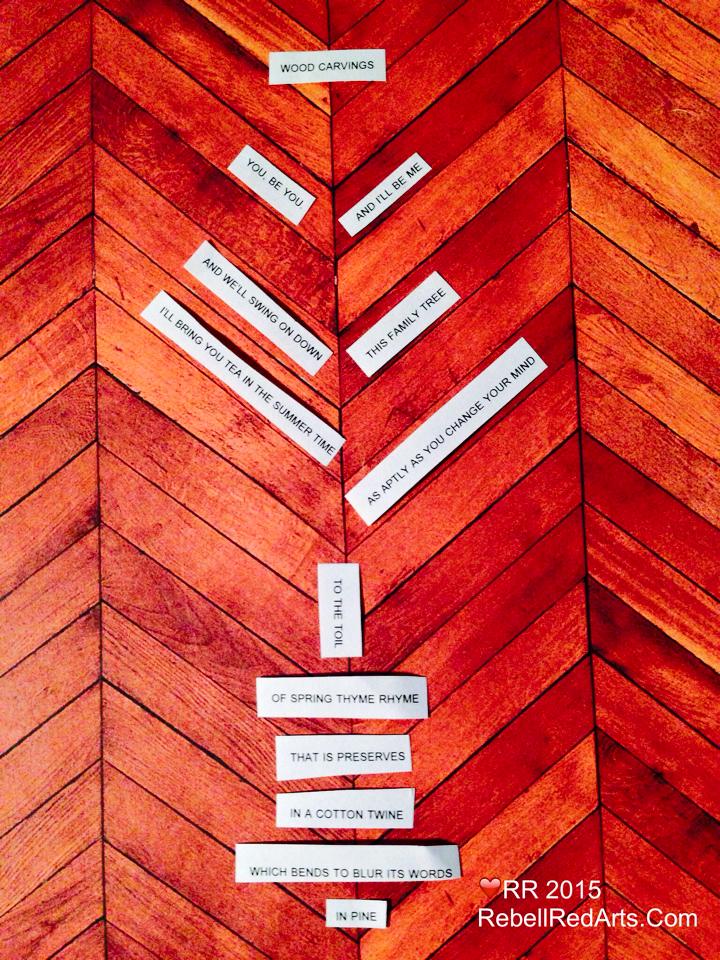 WOOD CARVINGS
YOU, BE YOU,
AND I'LL BE ME
AND WE'LL SWING ON DOWN
THIS FAMILY TREE
I'LL BRING YOU TEA IN THE SUMMER TIME
AS APTLY AS YOU CHANGE YOUR MIND
TO THE TOIL
OF SPRING THYME RHYME
THAT IS PRESERVES
IN A COTTON TWINE
WHICH BENDS TO BLUR ITS WORDS
IN PINE
❤RR 2015
RebellRedArts.Com